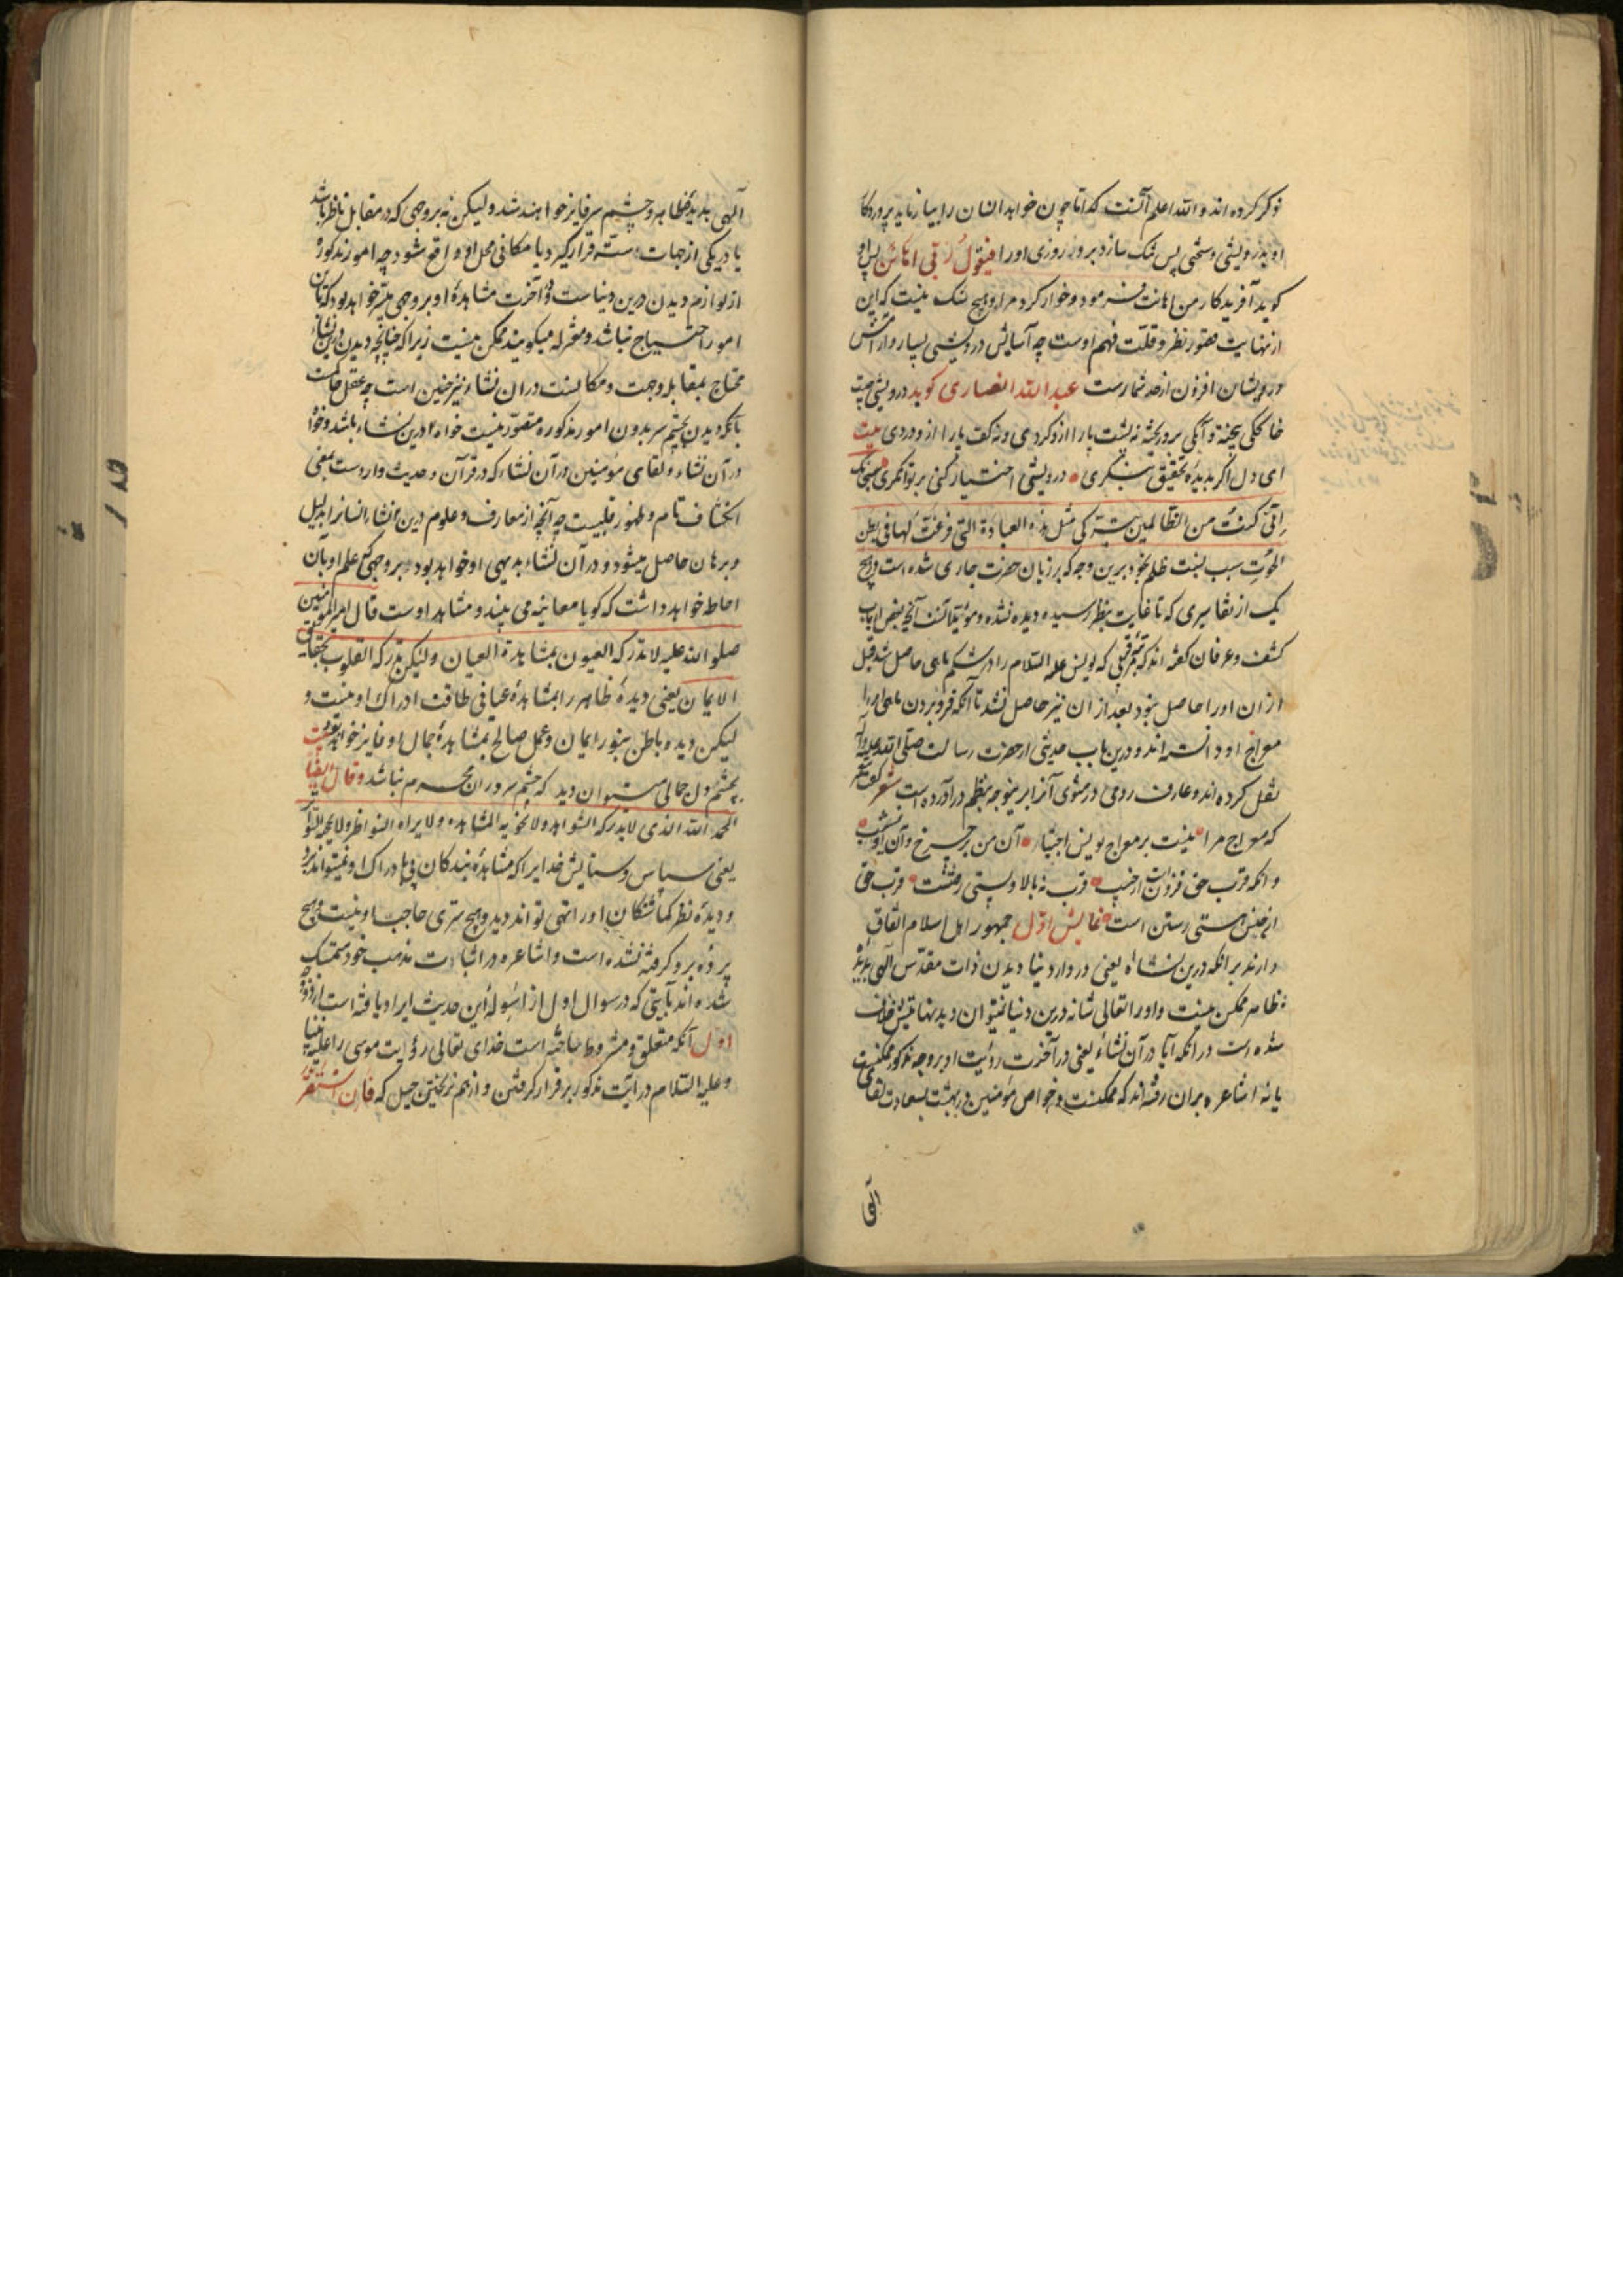 ذکر کرده اند و الله اعلم آنست که اما چون خواهد انسان را بیازماید پروردکا
او بدرویشی و سختی پس تنک سازد برو روزی اورا فیقول ربی اهانن پس او
کوید آفریدکار من اهانت فرمود و خوار کرد مرا و هیچ شک نیست که این
از نهایت قصور نظر و قلت فهم اوست چه آسایش درویشی بسیار و آرامش
درویشان افزون از حد شمارست عبدالله انصاری کوید درویشی چیست
خاککی بیخته و آبکی برو ریخته نه پشت پا را ازو کردی و نه کف پا را ازو دردی بیت
ای دل اکر بدیده تحقیق بنکری درویشی اختیار کنی بر توانکری سبحنک
انی کنت من الظالمین بترکی مثل هذه العبادة التی فرغت لها فی بطن
الحوت سبب نسبت ظلم بخود برین وجه که بر زبان حضرت جاری شده است در هیچ
یک از تفاسیری که تا غایت بنظر رسیده دیده نشده و آنچه بعض ارباب
کشف و عرفان کفته اند که قربی که یونس علیه السلام را در شکم ماهی حاصل شد قبل
ازان اورا حاصل نبود بعد از ان نیز حاصل نشد تا آنکه فرو بردن ماهی اورا
معراج او دانسته اند و درین باب حدیثی از حضرت رسالت صلی الله علیه و آله
نقل کرده اند و عارف رومی در مثنوی آنرا برینوجه بنظم در آورده است شعر کفت پیغمبر
که معراج مرا نیست بر معراج یونس اجتبا آن من بر چرخ و آن او بشیب
زانکه قرب حق فزونست از حسیب قرب نه بالا و پستی رفتنست قرب حق
از جنس هستی رستن است نمایش اول جمهور اهل اسلام اتفاق
دارند بر انکه درین نشاه یعنی در دار دنیا دیدن ذات مقدس الهی بدیده
ظاهر ممکن نیست و اورا تعالی شانه درین دنیا نمیتوان دید نهایتش خلاف
شده است در انکه آیا در آن نشاء یعنی در آخرت رؤیت او بر وجه مذکور ممکنست
یا نه اشاعره بران رفته اند که ممکنست و خواص مؤمنین در بهشت بسعادت لقای
الهی
الهی بدیده ظاهر و چشم سر فایز خواهند شد و لیکن نه بروجهی که در مقابل ناظر باشد
یا در یکی از جهات سته قرار کیرد یا مکانی محل او واقع شود چه امور مذکوره
از لوازم دیدن درین دنیاست و در آخرت مشاهده او بروجهی میسر خواهد بود که بآن
امور احتیاج نباشد و معتزله میکویند ممکن نیست زیرا که چنانچه دیدن درین نشاء
محتاج بمقابله و جهت و مکانست دران نشاء نیز چنین است چه عقل حاکمست
بانکه دیدن بچشم سر بدون امور مذکوره متصور نیست خواه درین نشاء باشد و خواه
در آن نشاء و لقای مؤمنین در آن نشاء که در قرآن و حدیث وارد ست بمعنی
انکشاف تام و ظهور قلبیست چه آنچه از معارف و علوم درین نشاء انسانرا بدلیل
و برهان حاصل میشود در آن نشاء بدیهی او خواهد بود بروجهی که علم او بآن
احاطه خواهد داشت که کویا معاینه می بیند و مشاهد اوست قال امیر المؤمنین
صلوات الله علیه لا تدرکه العیون بمشاهدة العیان ولیکن تدرکه القلوب بحقایق
الایمان یعنی دیدهٔ ظاهر را بمشاهدهٔ عیانی طاقت ادراک او نیست و
لیکن دیده باطن بنور ایمان و عمل صالح بمشاهدهٔ جمال او فایز خواهد بود بیت
بچشم دل جمالی میتوان دید که چشم سر دران محرم نباشد و قال ایضا
الحمد لله الذی لا تدرکه الشواهد ولا تحویه المشاهد ولا یراه النواظر ولا یحجبه السواتر
یعنی سپاس و ستایش خدایرا که مشاهدهٔ بندکان پی بادراک او نمیتواند برد
و دیدهٔ نظر کماشتکان اورا نمی تواند دید و هیچ ستری حاجب او نیست و هیچ
پرده برو کرفته نشده است و اشاعره در اثبات مذهب خود متمسک
شده اند بآیتی که در سوال اول از اسئولهٔ این حدیث ایراد یافته است از دو وجه
اول آنکه متعلق و مشروط ساخته است خدای تعالی رؤیت موسی را علی نبینا
و علیه السلام در آیت مذکور بر قرار کرفتن و از هم نریختن جبل که فان استقر